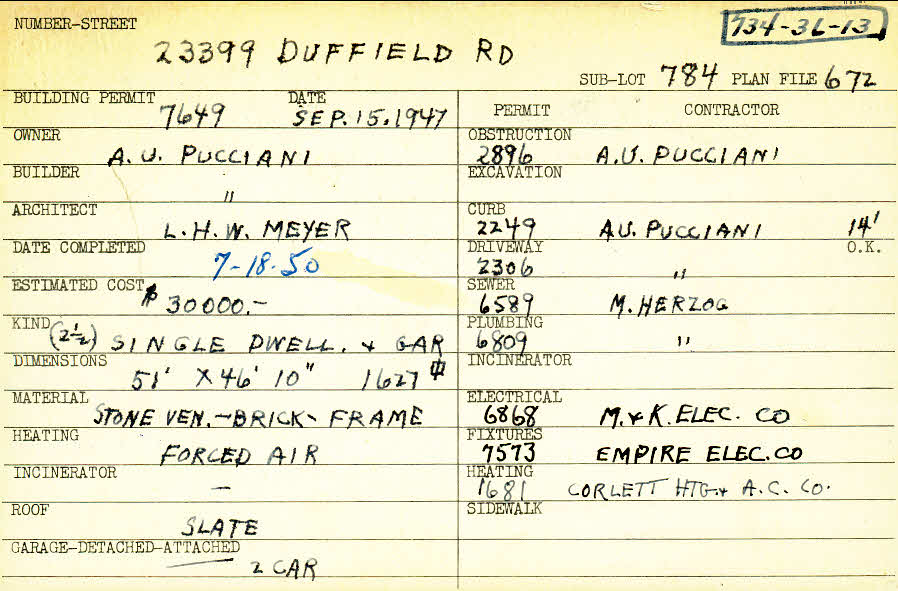 NUMBER-STREET
734-31-13
23399 DUFFIELD RD
SUB-LOT 784 PLAN FILE 672
BUILDING PERMIT DATE
7649 SEP. 15. 1947
OWNER
A. U. PUCCIANI
BUILDER
"
ARCHITECT
L. H. W. MEYER
DATE COMPLETED
7-18-50
ESTIMATED COST
$ 30000.-
KIND
(2½) SINGLE DWELL. & GAR
DIMENSIONS
51' X 46' 10" 1627
MATERIAL
STONE VEN. - BRICK - FRAME
HEATING
FORCED AIR
INCINERATOR
-
ROOF
SLATE
GARAGE-DETACHED-ATTACHED
2 CAR
PERMIT CONTRACTOR
OBSTRUCTION
2896 A.U. PUCCIANI
EXCAVATION
CURB
2249 A.U. PUCCIANI 14'
DRIVEWAY O.K.
2306 "
SEWER
6589 M. HERZOG
PLUMBING
6809 "
INCINERATOR
ELECTRICAL
6868 M. & K. ELEC. CO
FIXTURES
7573 EMPIRE ELEC. CO
HEATING
1681 CORLETT HTG. & A.C. CO.
SIDEWALK